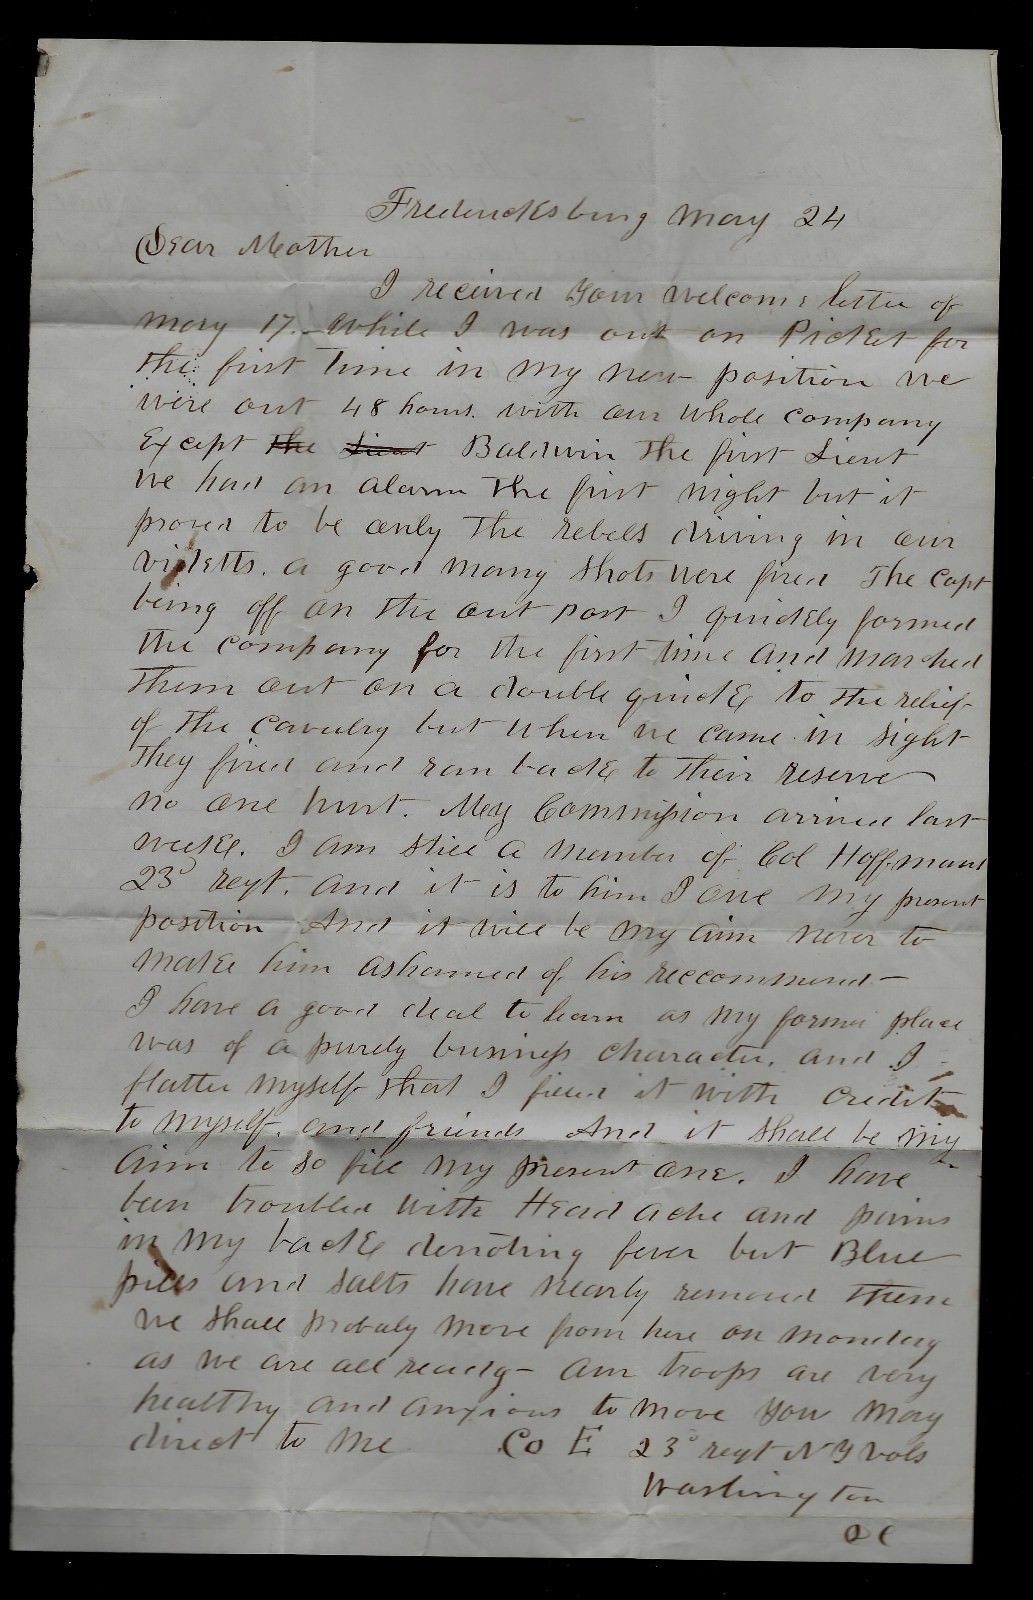 Fredericksburg May 24
Dear Mother
I received your welcome letter of
May 17. While I was out on Picket for
the first Time in my new position we
were out 48 hours. with our whole company
Except the Lieut Baldwin the first Lieut
we had an alarm the first night but it
proved to be only the rebels driving in our
videtts. a good many shots were fired The Capt
being off on the out post I quickly formed
the company for the first time and marched
them out on a double quick to the relief
of the cavalry but when we came in sight
they fired and ran back to their reserve
no one hurt. My Commission arrived last
week. I am still a member of Col Hoffmans
23d regt. and it is to him I owe my present
position And it will be my aim never to
make him ashamed of his reccommend-
I have a good deal to learn as my former place
was of a purely business character. and I
flatter myself that I filled it with credit
to myself. and friends And it shall be my
aim to so fill my present one. I have
been troubled with Head ache and pains
in my back denoting fever but Blue
pills and salts have nearly removed them
we shall probaly move from here on monday
as we are all ready- our troops are very
healthy and anxious to move You may
direct to me Co E 23d regt N Y Vols
Washington
D C